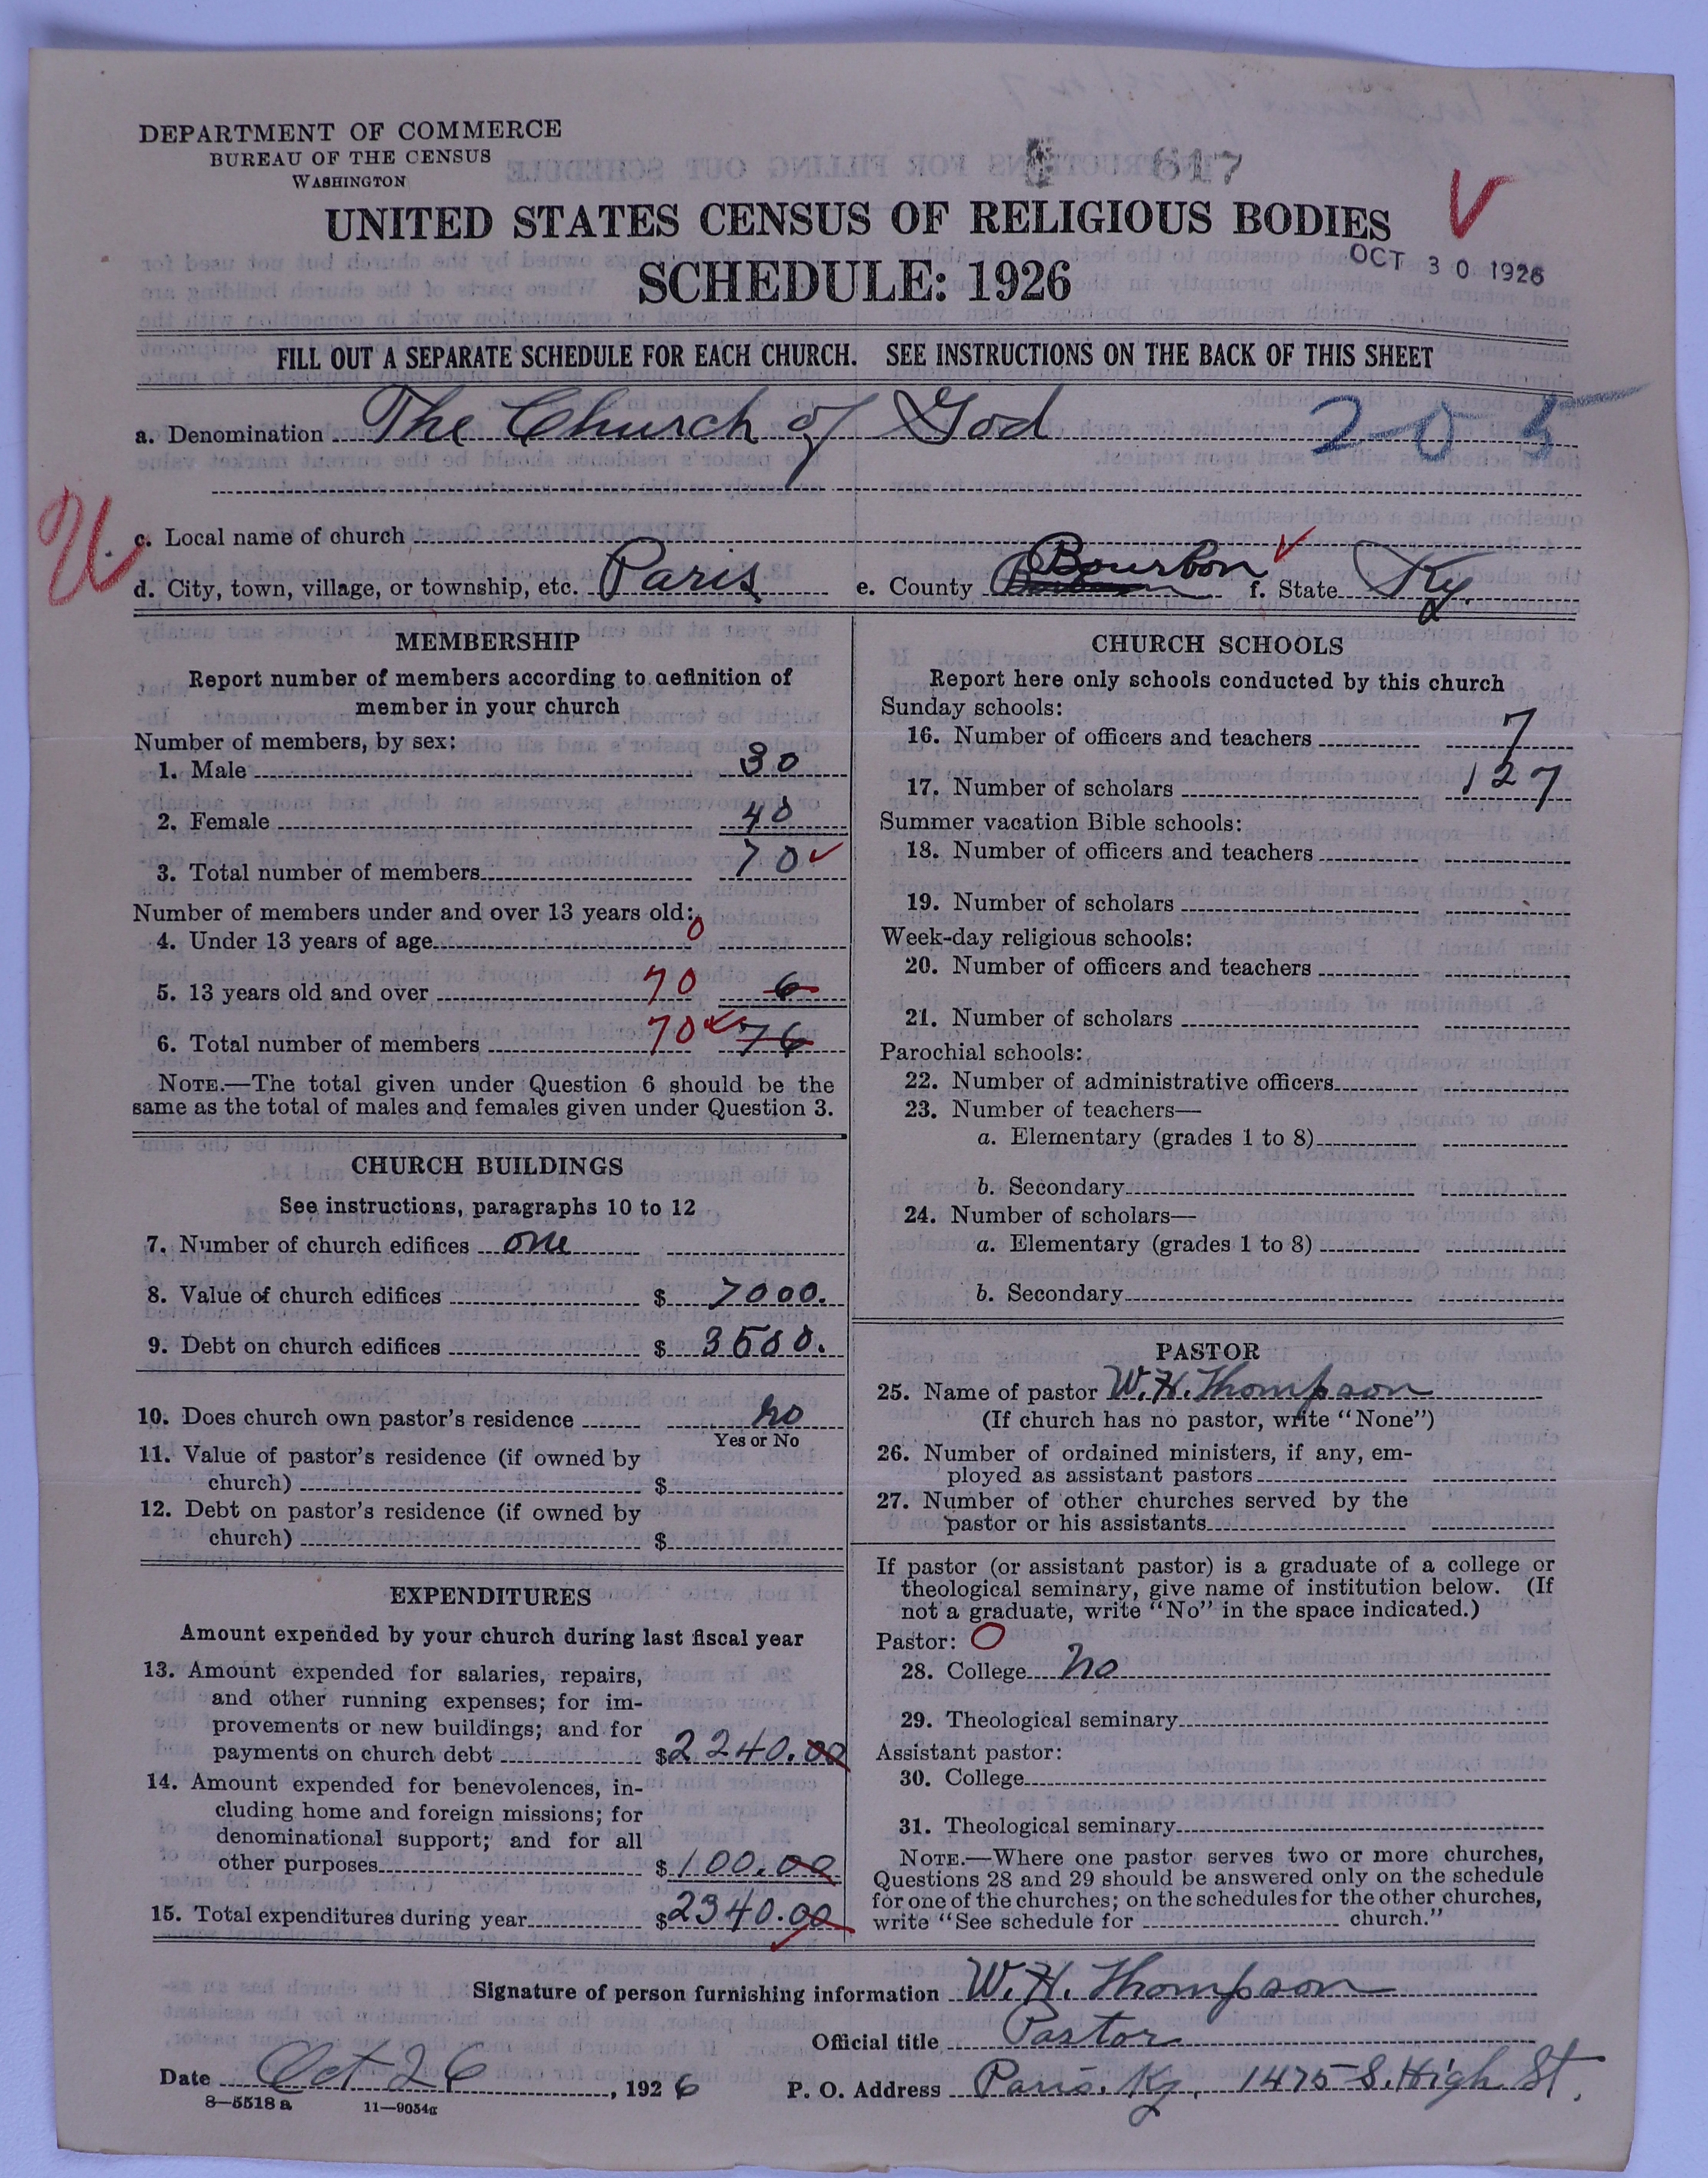 DEPARTMENT OF COMMERCE
BUREAU OF THE CENSUS
WASHINGTON
617
UNITED STATES CENSUS OF RELIGIOUS BODIES
SCHEDULE: 1926
OCT 30 1926
FILL OUT A SEPARATE SCHEDULE FOR EACH CHURCH. SEE INSTRUCTIONS ON THE BACK OF THIS SHEET
a. Denomination The Church of God 205
c. Local name of church
d. City, town, village, or township, etc. Paris e. County Bourbon f. State Ky.
MEMBERSHIP
Report number of members according to definition of
member in your church
Number of members, by sex:
1. Male 30
2. Female 40
3. Total number of members 70
Number of members under and over 13 years old:
4. Under 13 years of age 0
5. 13 years old and over 70 6
6. Total number of members 70 76
NOTE.—The total given under Question 6 should be the
same as the total of males and females given under Question 3.
CHURCH BUILDINGS
See instructions, paragraphs 10 to 12
7. Number of church edifices one
8. Value of church edifices $ 7000.
9. Debt on church edifices $ 3500.
10. Does church own pastor's residence no
Yes or No
11. Value of pastor's residence (if owned by
church) $
12. Debt on pastor's residence (if owned by
church) $
EXPENDITURES
Amount expended by your church during last fiscal year
13. Amount expended for salaries, repairs,
and other running expenses; for im-
provements or new buildings; and for
payments on church debt $2240.00
14. Amount expended for benevolences, in-
cluding home and foreign missions; for
denominational support; and for all
other purposes $100.00
15. Total expenditures during year $2340.00
CHURCH SCHOOLS
Report here only schools conducted by this church
Sunday schools:
16. Number of officers and teachers 7
17. Number of scholars 127
Summer vacation Bible schools:
18. Number of officers and teachers
19. Number of scholars
Week-day religious schools:
20. Number of officers and teachers
21. Number of scholars
Parochial schools:
22. Number of administrative officers
23. Number of teachers—
a. Elementary (grades 1 to 8)
b. Secondary
24. Number of scholars—
a. Elementary (grades 1 to 8)
b. Secondary
PASTOR
25. Name of pastor W. H. Thompson
(If church has no pastor, write "None")
26. Number of ordained ministers, if any, em-
ployed as assistant pastors
27. Number of other churches served by the
pastor or his assistants
If pastor (or assistant pastor) is a graduate of a college or
theological seminary, give name of institution below. (If
not a graduate, write "No" in the space indicated.)
Pastor: O
28. College no
29. Theological seminary
Assistant pastor:
30. College
31. Theological seminary
NOTE.—Where one pastor serves two or more churches,
Questions 28 and 29 should be answered only on the schedule
for one of the churches; on the schedules for the other churches,
write "See schedule for church."
Signature of person furnishing information W. H. Thompson
Official title Pastor
Date Oct 26, 1926 P. O. Address Paris, Ky, 1475 S. High St.
8—5518 a 11—9054a